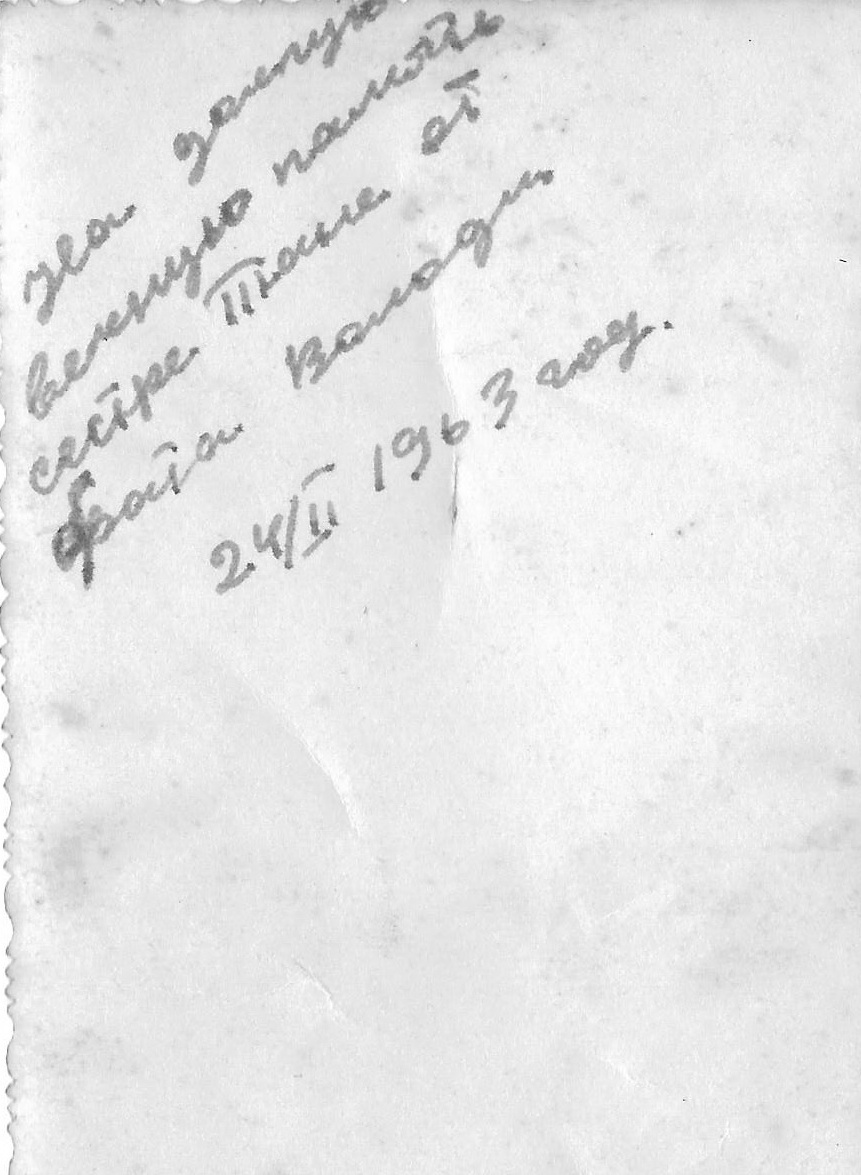 на долгую
вечную память
сестре Тане от
брата Володи.
24/II 1963 год.